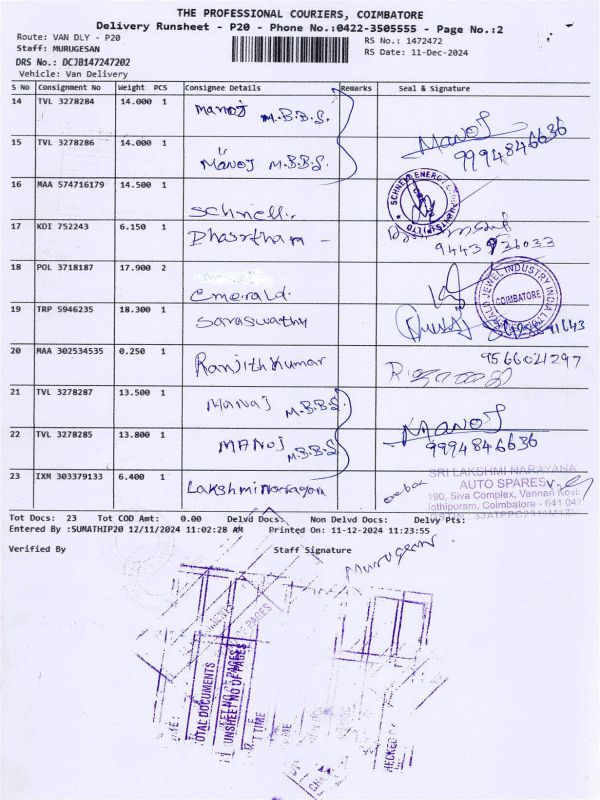 THE PROFESSIONAL COURIERS, COIMBATORE
Delivery Runsheet - P20 - Phone No.:0422-3505555 - Page No.:2
Route: VAN DLY - P20
RS No.: 1472472
Staff: MURUGESAN
RS Date: 11-Dec-2024
DRS No.: DCJB147247202
Vehicle: Van Delivery
S No Consignment No Weight PCS Consignee Details Remarks Seal & Signature
14 TVL 3278284 14.000 1 Manoj M.B.B.S.
15 TVL 3278286 14.000 1 Manoj M.B.B.S. Manoj 9994846636
16 MAA 574716179 14.500 1 Schnell.
SCHNELL ENERGY
17 KDI 752243 6.150 1 Dhasrtham -
18 POL 3718187 17.900 2 Emerald.
JEWEL INDUSTRY INDIA
COIMBATORE
19 TRP 5946235 18.300 1 Saraswathy
20 MAA 302534535 0.250 1 Ranjith Kumar 9566021297
21 TVL 3278287 13.500 1 Manoj M.B.B.S.
22 TVL 3278285 13.800 1 MANOJ M.B.B.S Manoj 9994846636
23 IXM 303379133 6.400 1 Lakshmi Narayan
SRI LAKSHMI NARAYANA
AUTO SPARES
190, Siva Complex, Vannan Kovil
Jothipuram, Coimbatore - 641 047
Tot Docs: 23 Tot COD Amt: 0.00 Delvd Docs: Non Delvd Docs: Delvy Pts:
Entered By :SUMATHIP20 12/11/2024 11:02:28 AM Printed On: 11-12-2024 11:23:55
Verified By Staff Signature
Murugesan.
TOTAL DOCUMENTS